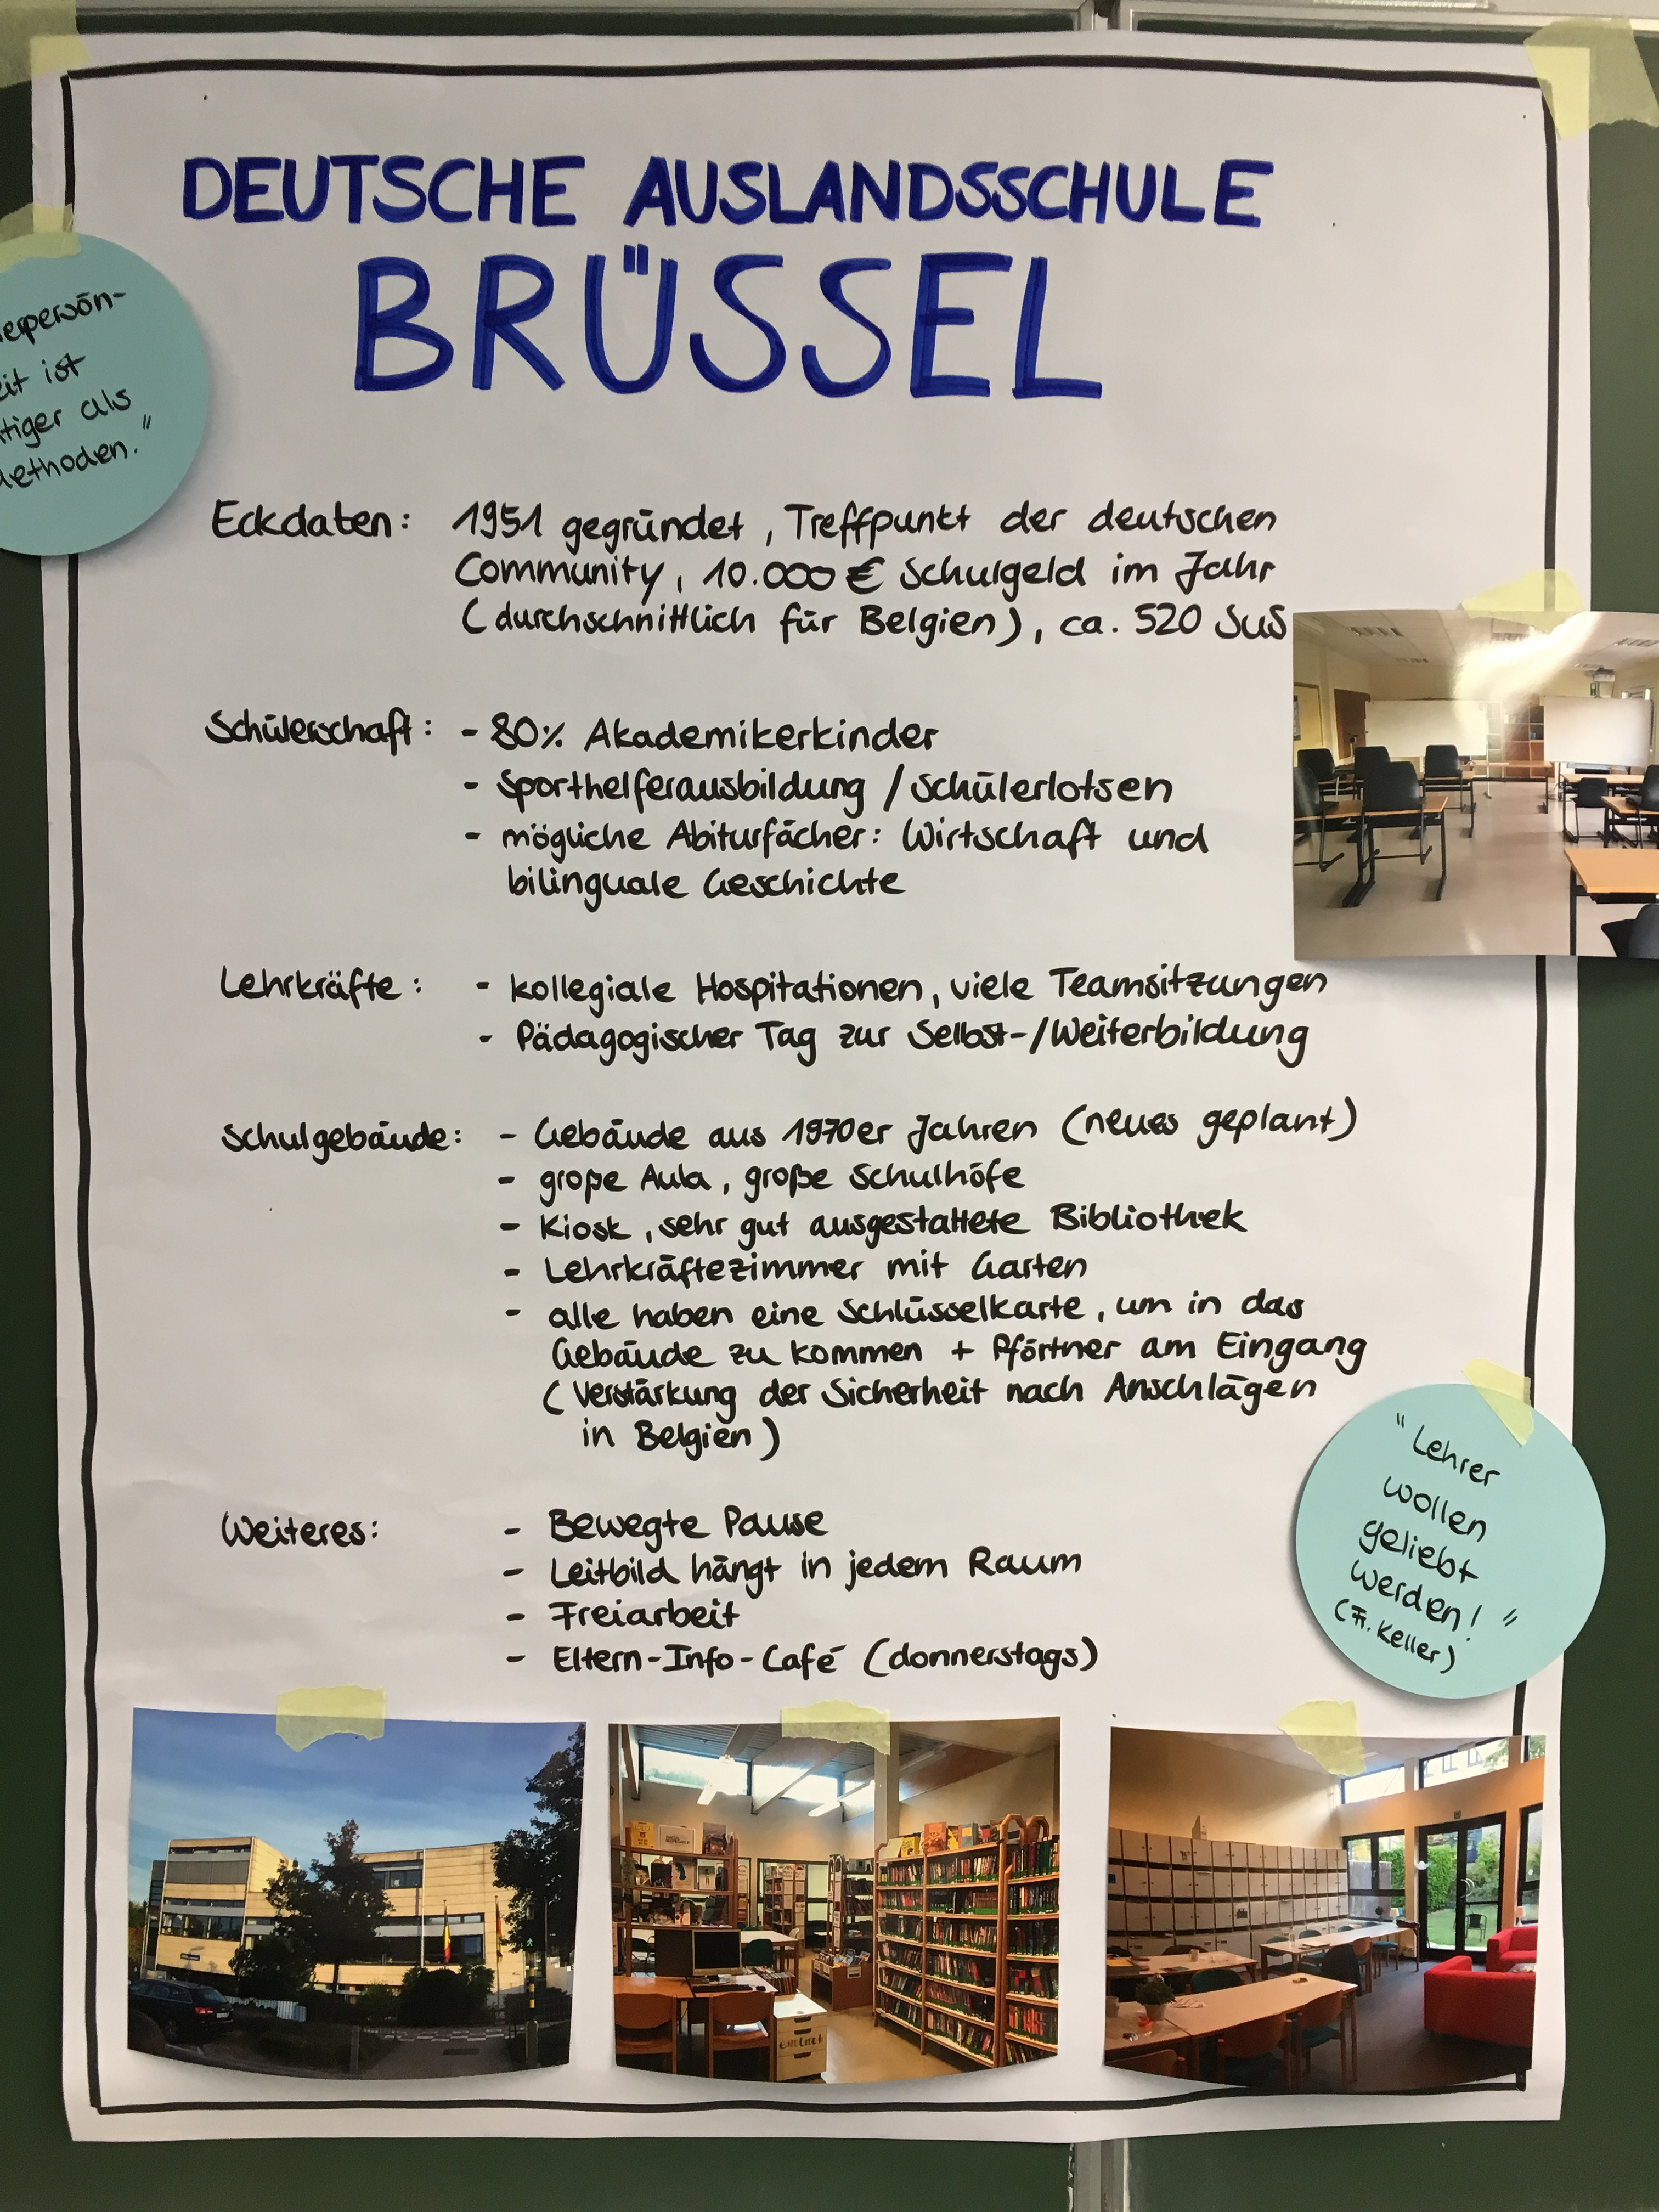 DEUTSCHE AUSLANDSSCHULE
BRÜSSEL
ist
als
"
Eckdaten: 1951 gegründet, Treffpunkt der deutschen
Community, 10.000 € Schulgeld im Jahr
(durchschnittlich für Belgien), ca. 520 SuS
Schülerschaft: - 80% Akademikerkinder
- Sporthelferausbildung / Schülerlotsen
- mögliche Abiturfächer: Wirtschaft und
bilinguale Geschichte
Lehrkräfte: - kollegiale Hospitationen, viele Teamsitzungen
- Pädagogischer Tag zur Selbst-/Weiterbildung
Schulgebäude: - Gebäude aus 1970er Jahren (neues geplant)
- große Aula, große Schulhöfe
- Kiosk, sehr gut ausgestattete Bibliothek
- Lehrkräftezimmer mit Garten
- alle haben eine Schlüsselkarte, um in das
Gebäude zu kommen + Pförtner am Eingang
(Verstärkung der Sicherheit nach Anschlägen
in Belgien)
"Lehrer
wollen
geliebt
werden!"
(Fr. Keller)
Weiteres: - Bewegte Pause
- Leitbild hängt in jedem Raum
- Freiarbeit
- Eltern-Info-Café (donnerstags)